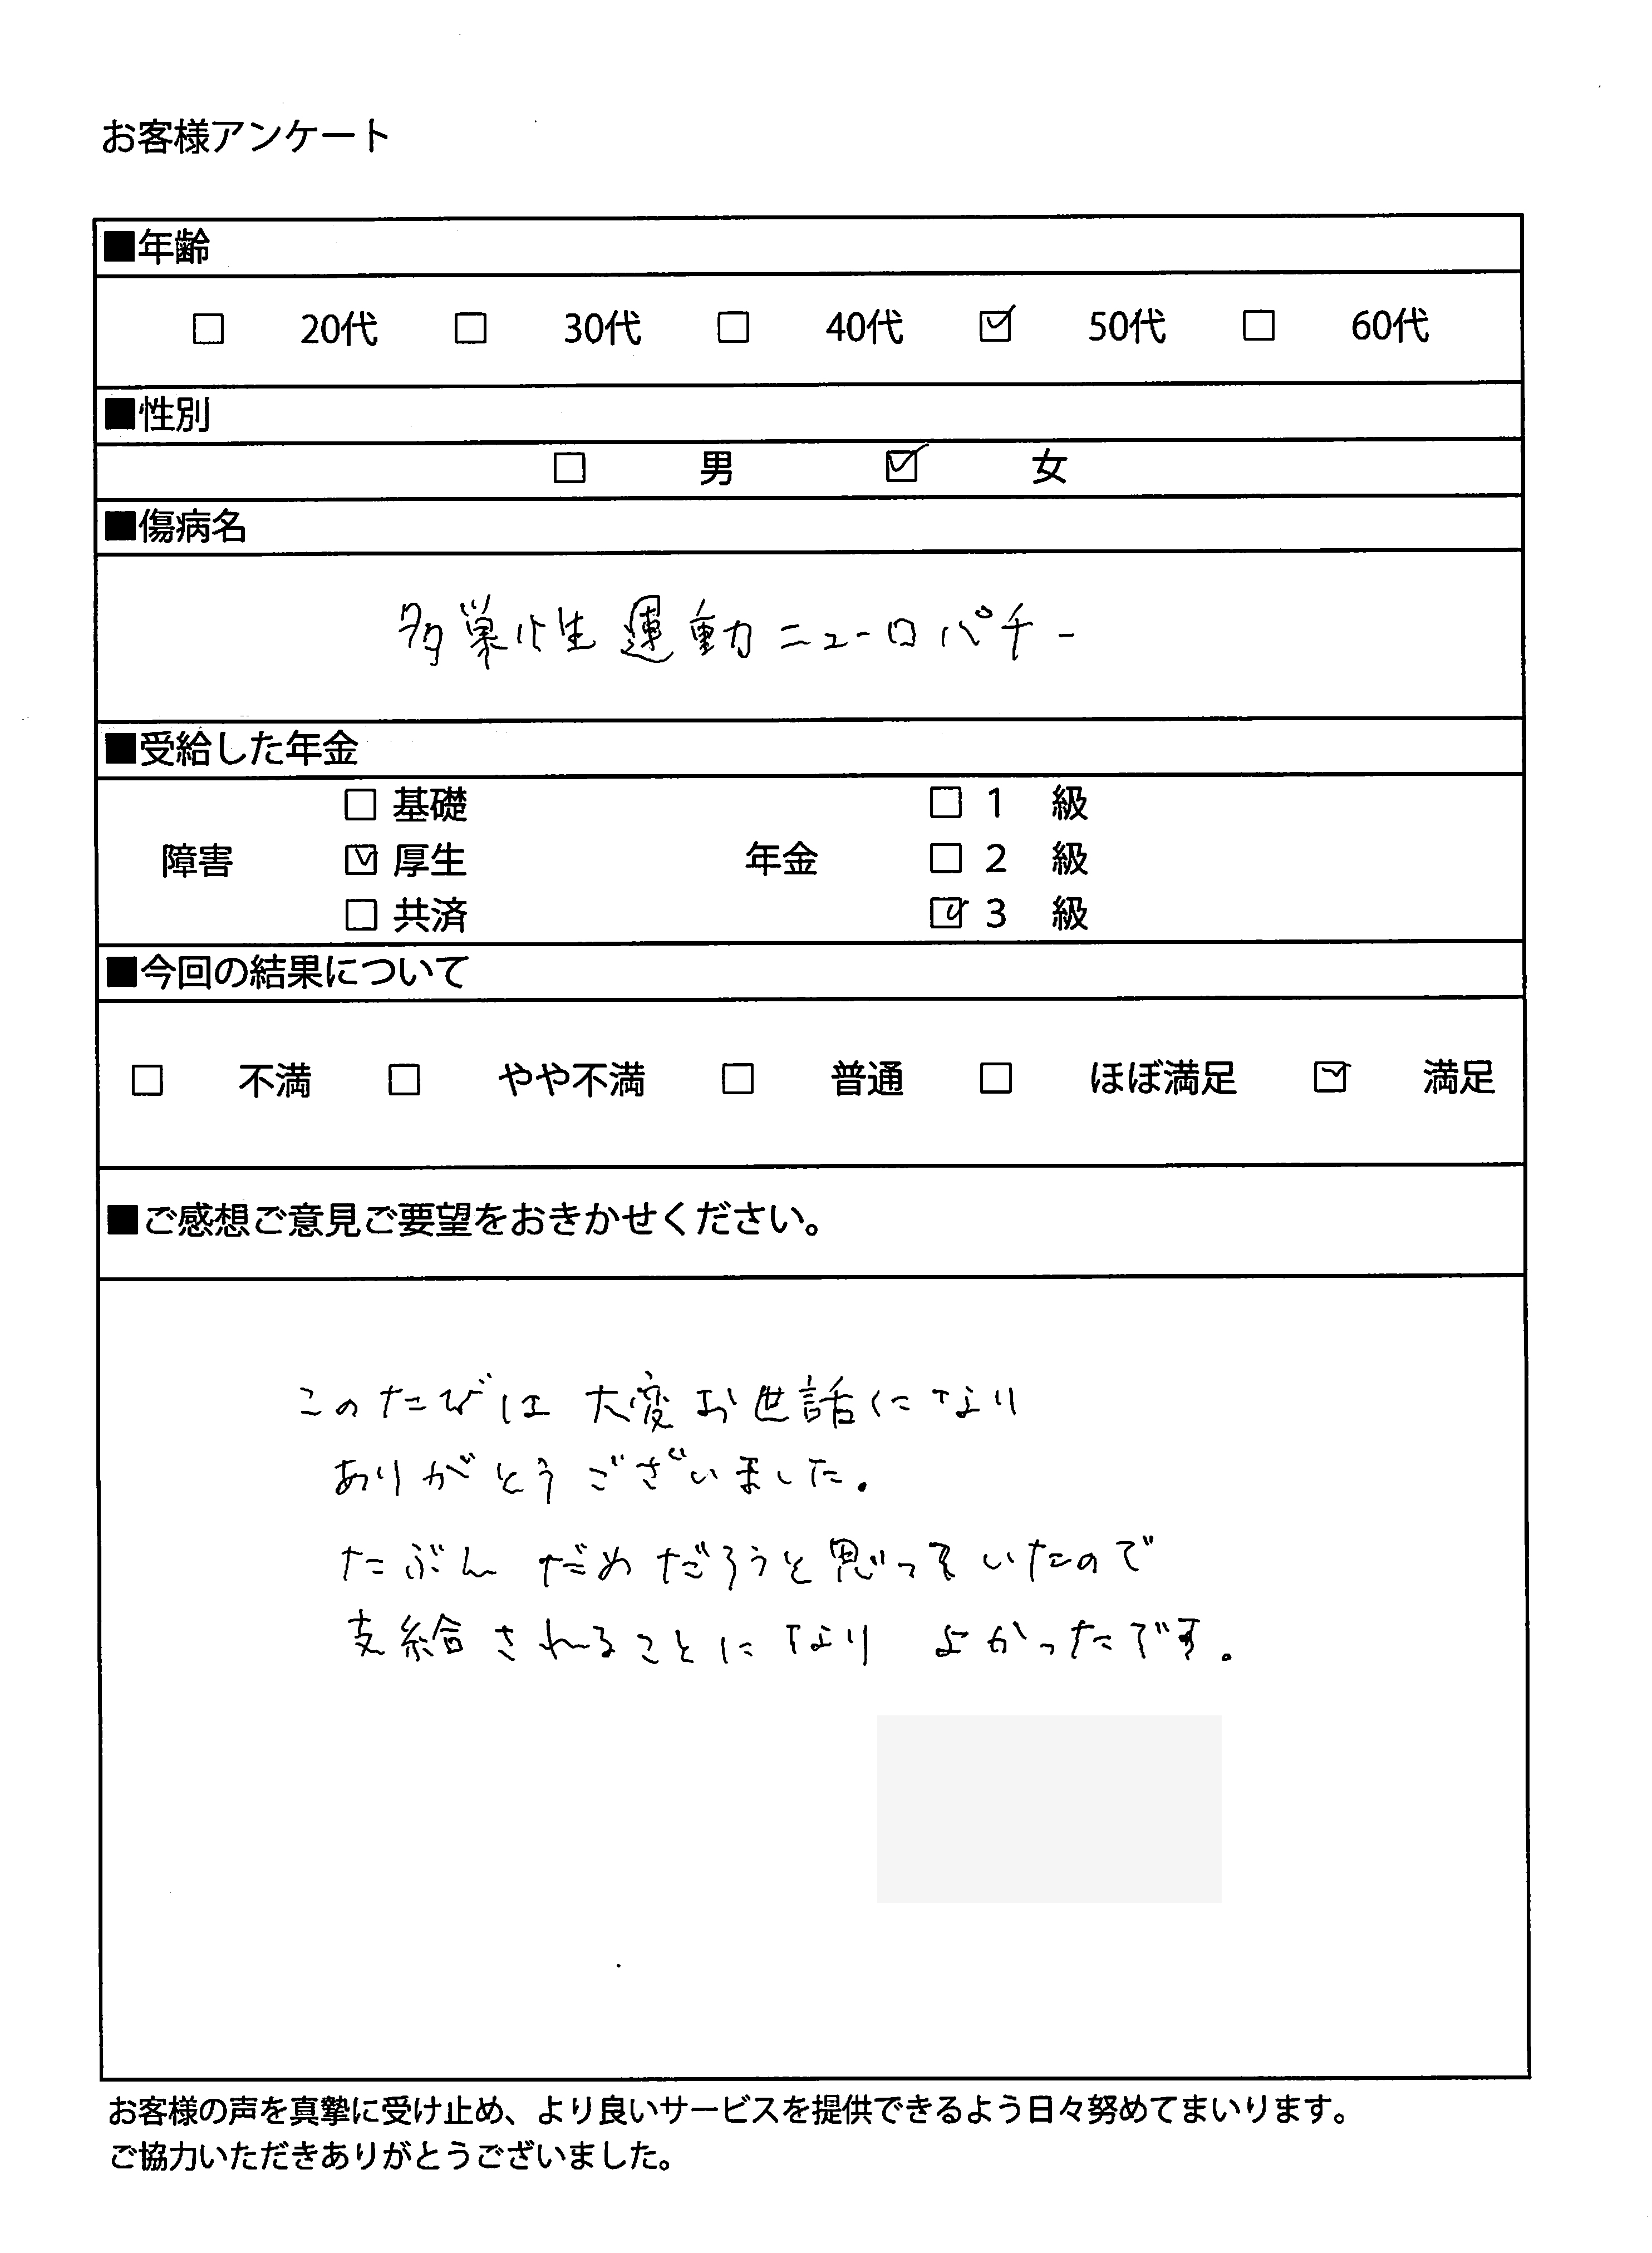 お客様アンケート
■年齢
□ 20代 □ 30代 □ 40代 ☑ 50代 □ 60代
■性別
□ 男 ☑ 女
■傷病名
多巣性運動ニューロパチー
■受給した年金
□ 基礎 □ 1 級
障害 ☑ 厚生 年金 □ 2 級
□ 共済 ☑ 3 級
■今回の結果について
□ 不満 □ やや不満 □ 普通 □ ほぼ満足 ☑ 満足
■ご感想ご意見ご要望をおきかせください。
このたびは大変お世話になり
ありがとうございました。
たぶんだめだろうと思っていたので
支給されることになり よかったです。
お客様の声を真摯に受け止め、より良いサービスを提供できるよう日々努めてまいります。
ご協力いただきありがとうございました。